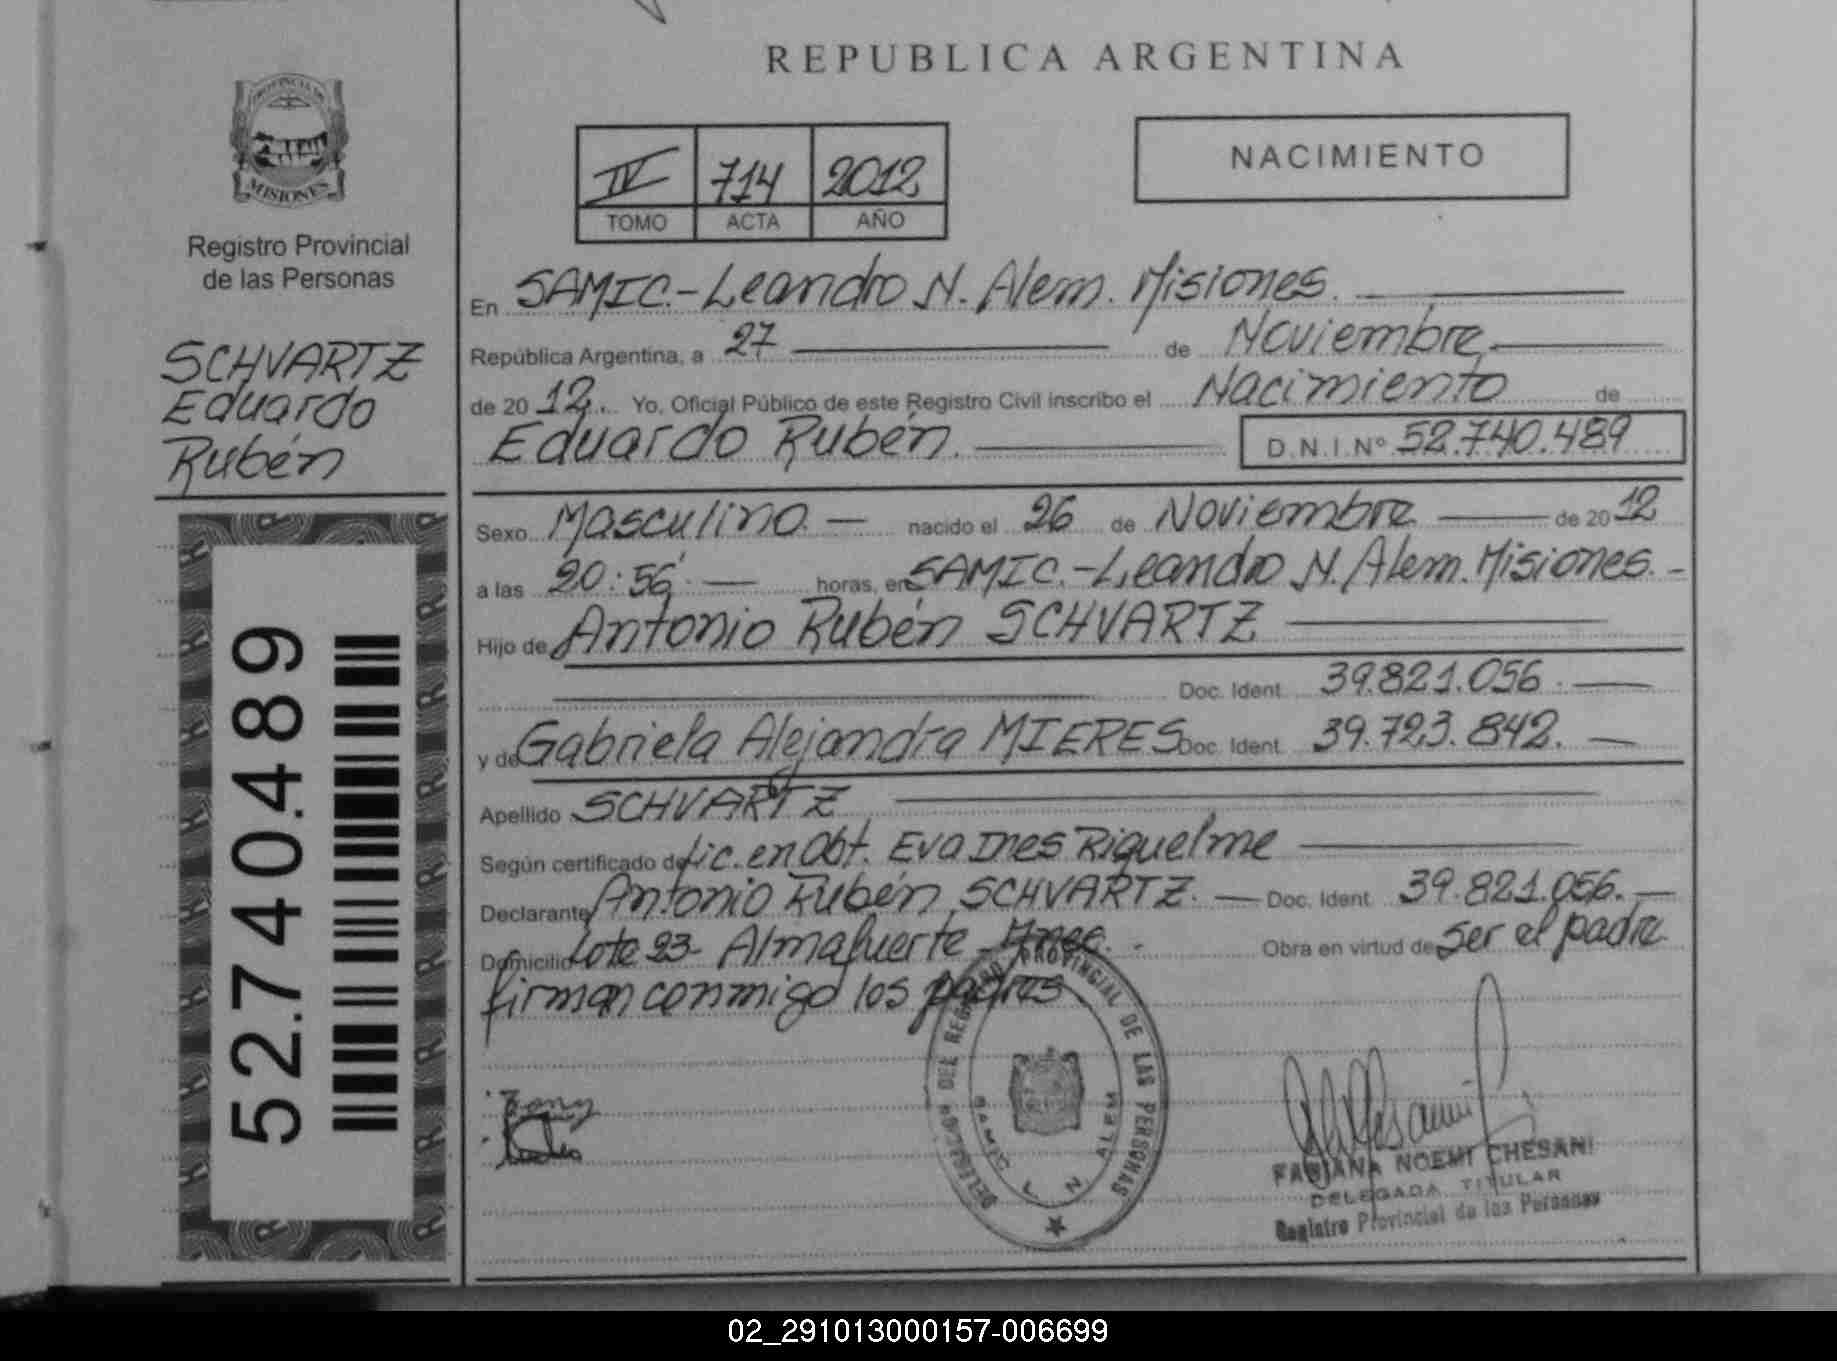 REPUBLICA ARGENTINA
PROVINCIA DE
MISIONES
Registro Provincial
de las Personas
SCHVARTZ
Eduardo
Rubén
52.740.489
IV 714 2012
TOMO ACTA AÑO
NACIMIENTO
En SAMIC.-Leandro N. Alem. Misiones.
República Argentina, a 27 de Noviembre
de 2012. Yo, Oficial Público de este Registro Civil inscribo el Nacimiento de
Eduardo Rubén. D.N.I.Nº 52.740.489
Sexo Masculino. nacido el 26 de Noviembre de 2012
a las 20:56 horas, en SAMIC.-Leandro N. Alem. Misiones.-
Hijo de Antonio Rubén SCHVARTZ
Doc. Ident. 39.821.056
y de Gabriela Alejandra MIERES Doc. Ident. 39.723.842.
Apellido SCHVARTZ
Según certificado de Lic. en Obt. Eva Ines Riquelme
Declarante Antonio Rubén SCHVARTZ. Doc. Ident. 39.821.056.
Domicilio Lote 23- Almafuerte Obra en virtud de ser el padre
firman conmigo los padres
DELEGADO DEL REGISTRO PROVINCIAL DE LAS PERSONAS
SAMIC L N ALEM
FABIANA NOEMI CHESANI
DELEGADA TITULAR
Registro Provincial de las Personas
02_291013000157-006699